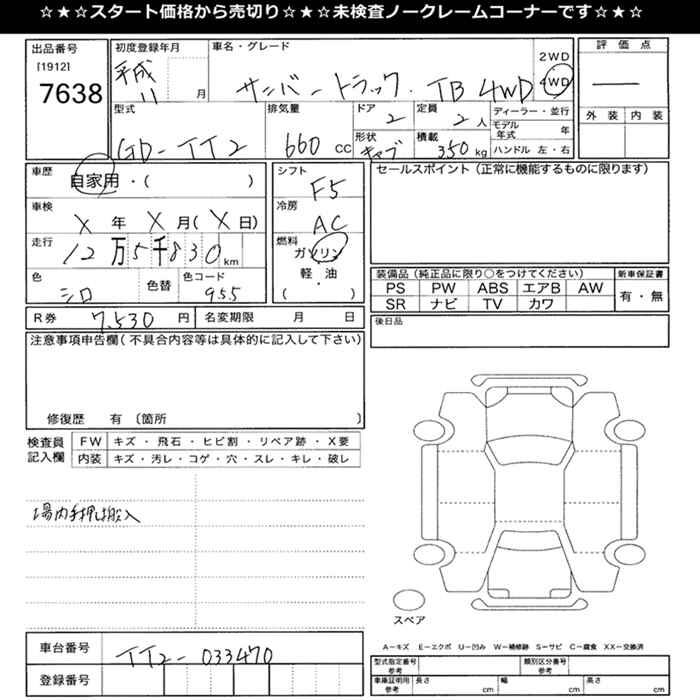 ☆★☆スタート価格から売切り☆★☆未検査ノークレームコーナーです☆★☆
出品番号
[1912]
7638
初度登録年月
平成
11 月
車名・グレード
サンバートラック TB 4WD
2WD
4WD
評価点
—
外装 内装
型式
GD-TT2
排気量
660 CC
ドア
2
定員
2 人
形状
キャブ
積載
350 kg
ディーラー・並行
モデル年式 年
ハンドル 左・右
車歴
自家用・( )
車検
X 年 X 月(X 日)
走行
12万5千830 km
色
シロ
色替
色コード
955
シフト
F5
冷房
AC
燃料
ガソリン
・
軽・油
( )
セールスポイント(正常に機能するものに限ります)
装備品(純正品に限り○をつけてください)
PS PW ABS エアB AW
SR ナビ TV カワ
新車保証書
有・無
後日品
R券 7,530 円
名変期限 月 日
注意事項申告欄(不具合内容等は具体的に記入して下さい)
修復歴 有 〔箇所 〕
検査員
記入欄
FW キズ・飛石・ヒビ割・リペア跡・X要
内装 キズ・汚レ・コゲ・穴・スレ・キレ・破レ
場内手押し搬入
スペア
A−キズ E−エクボ U−凹み W−補修跡 S−サビ C−腐食 XX−交換済
車台番号 TT2-033470
登録番号
型式指定番号
参考
類別区分番号
参考
車庫証明用
参考
長さ cm 幅 cm 高さ cm